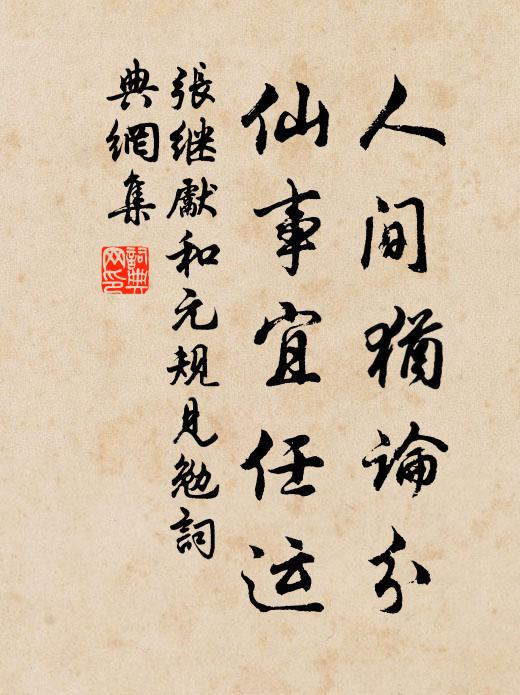 人間猶論分
仙事宜任运
張继獻和元規見勉詞
典網集
詞典網印